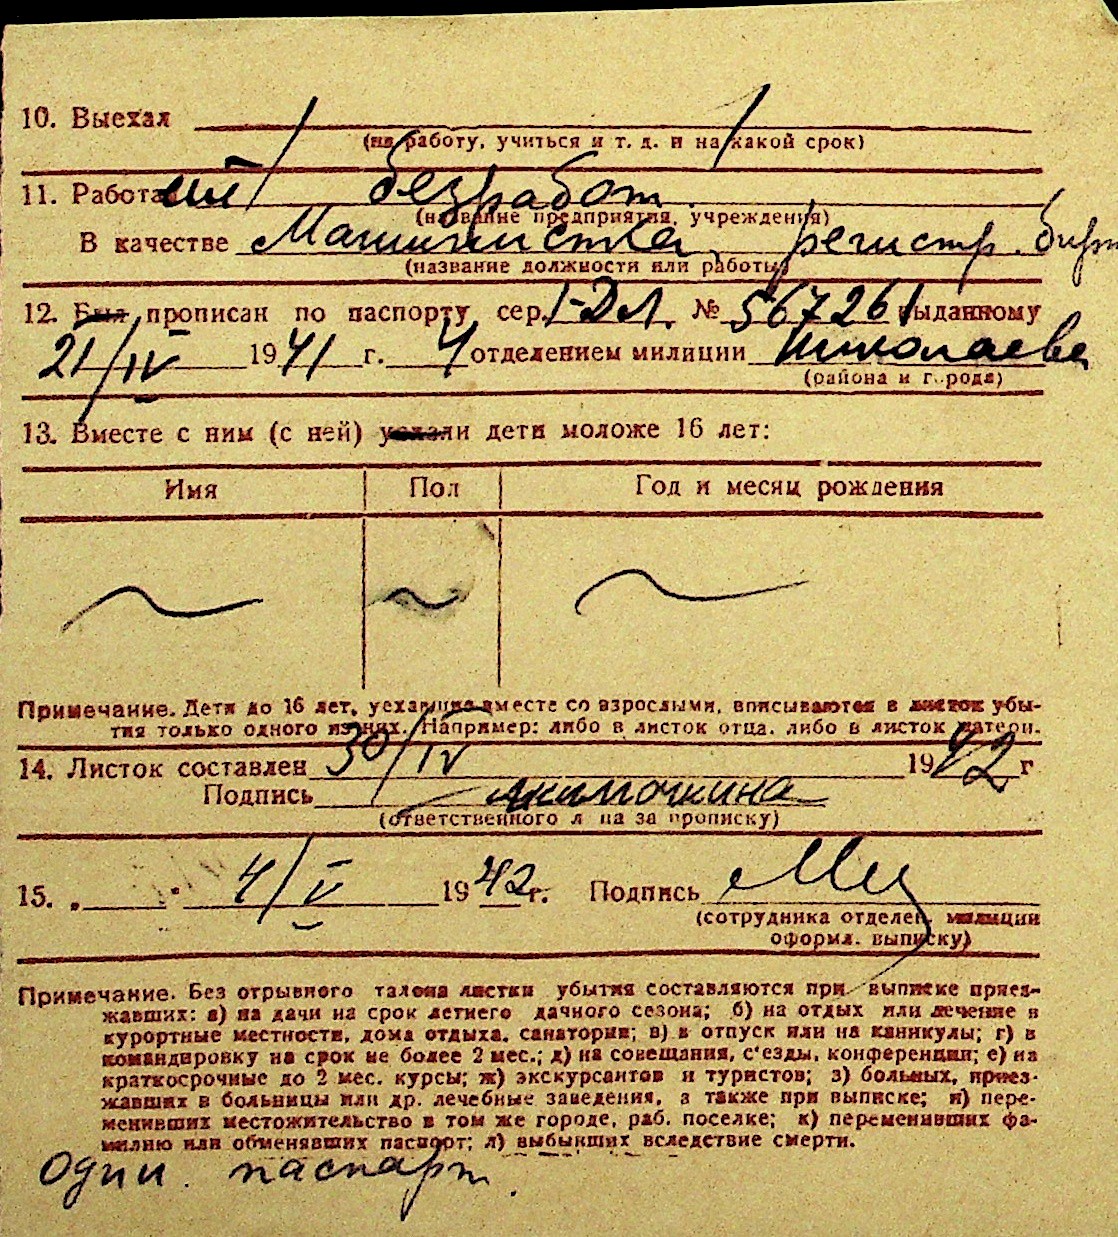 10. Выехал
(на работу, учиться и т. д. и на какой срок)
11. Работа безработ.
(название предприятия, учреждения)
В качестве Машинистка, регистр. бирж
(название должности или работы)
12. Был прописан по паспорту сер. I-ДЛ. № 567261 выданному
21/IV 1941 г. 4 отделением милиции Николаева
(района и города)
13. Вместе с ним (с ней) уехали дети моложе 16 лет:
Имя Пол Год и месяц рождения
Примечание. Дети до 16 лет, уехавшие вместе со взрослыми, вписываются в листок убы-
тия только одного из них. Например: либо в листок отца, либо в листок матери.
14. Листок составлен 30/IV 1942 г
Подпись Якимочкина
(ответственного лица за прописку)
15. „ " 4/V 1942 г. Подпись
(сотрудника отделен. милиции
оформл. выписку)
Примечание. Без отрывного талона листки убытия составляются при выписке приез-
жавших: а) на дачи на срок летнего дачного сезона; б) на отдых или лечение в
курортные местности, дома отдыха, санатории; в) в отпуск или на каникулы; г) в
командировку на срок не более 2 мес.; д) на совещания, с'езды, конференции; е) на
краткосрочные до 2 мес. курсы; ж) экскурсантов и туристов; з) больных, приез-
жавших в больницы или др. лечебные заведения, а также при выписке; и) пере-
менивших местожительство в том же городе, раб. поселке; к) переменивших фа-
милию или обменявших паспорт; л) выбывших вследствие смерти.
Один. паспорт.